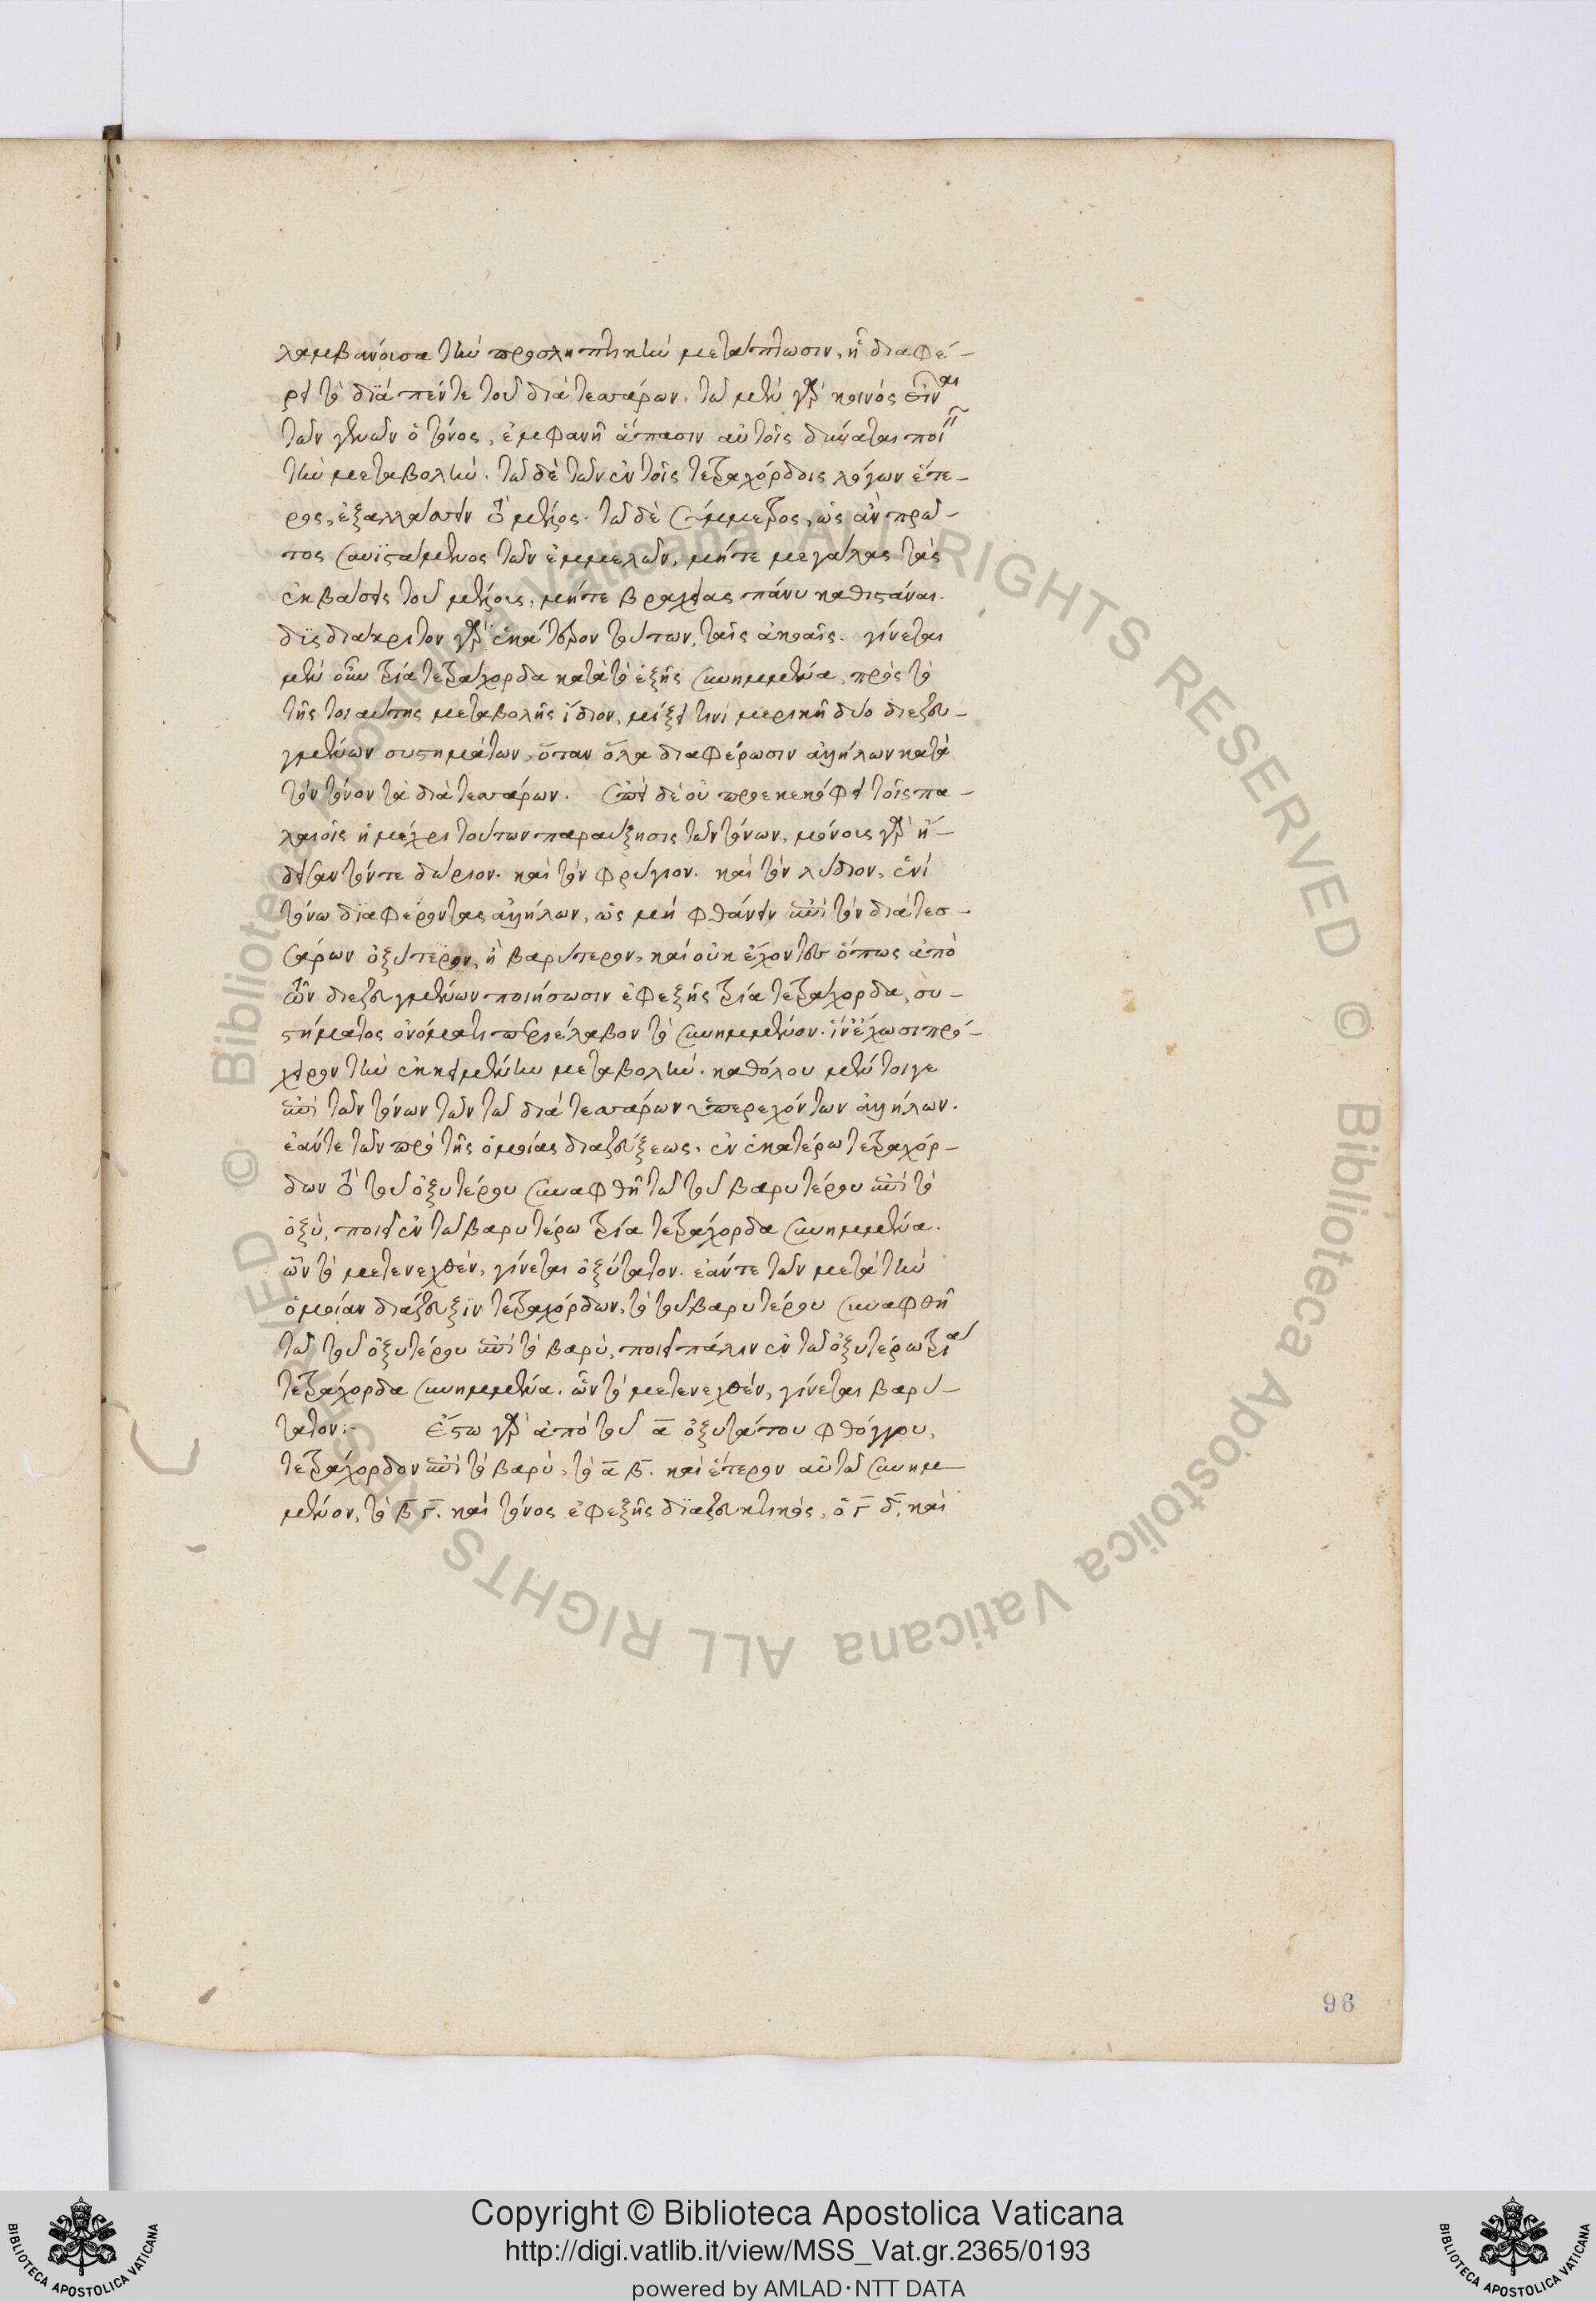 λαμβανόυσα τὴν προσληπτικὴν μετάπτωσιν, ἧ διαφέ-
ρει τὸ διὰ πέντε τοῦ διὰ τεσσάρων. τῶ μὲν γὰρ κοινὸς εἶναι
τῶν γενῶν ὁ τόνος, ἐμφανῆ ἅπασιν αὐτοῖς δύναται ποιεῖν
τὴν μεταβολήν. τῶ δὲ τῶν ἐν τοῖς τετραχόρδοις λόγων ἕτε-
ρος, ἐξαλλάσσειν τὸ μέλος. τῶ δὲ σύμμετρος, ὡς ἂν πρῶ-
τος συνϊστάμενος τῶν ἐμμελῶν, μήτε μεγάλας τὰς
ἐκβάσεις τοῦ μέλους, μήτε βραχείας πάνυ καθιστάναι.
δϋσδιάκριτον γὰρ ἑκάτερον τούτων, ταῖς ἀκοαῖς. γίνεται
μὲν οὖν τρία τετράχορδα κατὰ τὸ ἑξῆς συνημμένα, πρὸς τὸ
τῆς τοιαύτης μεταβολῆς ἴδιον, μίξει τινὶ μερικῆ δύο διεζευ-
γμένων συστημάτων, ὅταν ὅλα διαφέρωσιν ἀλλήλων κατὰ
τὸν τόνον τὰ διὰ τεσσάρων. ἐπεὶ δὲ οὐ προεκεκόφει τοῖς πα-
λαιοῖς ἡ μέχρι τούτων παραύξησις τῶν τόνων, μόνους γὰρ ἤ-
δεισαν τόντε δώριον. καὶ τὸν φρύγιον. καὶ τὸν λύδιον, ἑνὶ
τόνω διαφέροντας ἀλλήλων, ὡς μὴ φθάνειν ἐπὶ τὸν διὰ τεσ-
σάρων ὀξύτερον, ἢ βαρύτερον, καὶ οὐκ ἔχοντες ὅπως ἀπὸ
τῶν διεζευγμένων ποιήσωσιν ἐφεξῆς τρία τετράχορδα, συ-
στήματος ὀνόματι περιέλαβον τὸ συνημμένον. ἵν' ἔχωσι πρό-
χειρον τὴν ἐκκειμένην μεταβολήν. καθόλου μέντοιγε
ἐπὶ τῶν τόνων τῶν τῶ διὰ τεσσάρων ὑπερεχόντων ἀλλήλων.
ἐάντε τῶν πρὸ τῆς ὁμοίας διαζεύξεως, ἐν ἑκατέρω τετραχόρ-
δων τὸ τοῦ ὀξυτέρου συναφθῆ τῶ τοῦ βαρυτέρου ἐπὶ τὸ
ὀξὺ, ποιεῖ ἐν τῶ βαρυτέρω τρία τετράχορδα συνημμένα.
ὧν τὸ μετενεχθέν, γίνεται ὀξύτατον. ἐάντε τῶν μετὰ τὴν
ὁμοίαν διάζευξιν τετραχόρδων, τὸ τοῦ βαρυτέρου συναφθῆ
τῶ τοῦ ὀξυτέρου ἐπὶ τὸ βαρὺ, ποιεῖ πάλιν ἐν τῶ ὀξυτέρω τρία
τετράχορδα συνημμένα. ὧν τὸ μετενεχθέν, γίνεται βαρύ-
τατον:- Ἔστω γὰρ ἀπὸ τοῦ α̅ ὀξυτάτου φθόγγου,
τετράχορδον ἐπὶ τὸ βαρὺ, τὸ α̅ β̅. καὶ ἕτερον αὐτῶ συνημ-
μένον, τὸ β̅ γ̅. καὶ τόνος ἐφεξῆς διαζευκτικὸς, ὁ γ̅ δ̅. καὶ
96
Copyright © Biblioteca Apostolica Vaticana
http://digi.vatlib.it/view/MSS_Vat.gr.2365/0193
powered by AMLAD·NTT DATA